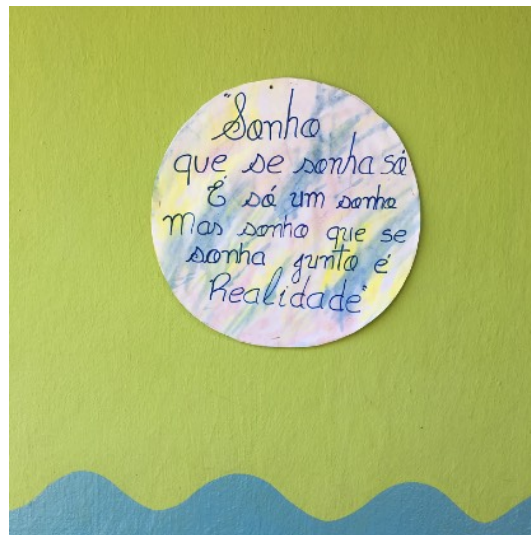 "Sonho
que se sonha só
É só um sonho
Mas sonho que se
sonha junto é
Realidade"